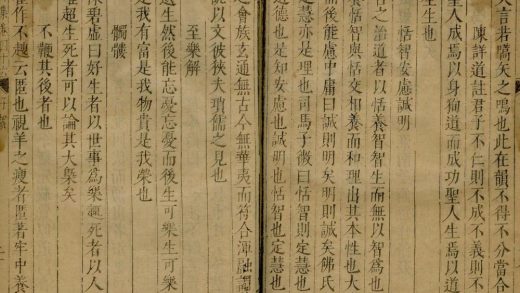 言若嚆矢之鳴也此在韻則不得不分當合
陳詳道註君子不仁則不成不義則不
聖人成焉以身狥道而成功聖人生焉以道
生生也
恬智安慮誠明
古之治道者以恬養智智生而無以智為也
養恬智與恬交相養而和理出其本性也大
而后能慮中庸曰誠則明矣明則誠矣佛氏
定慧亦是理也司馬子微曰恬智則定慧也
道德也是知安慮也誠明也恬智也定慧也
之會族玄通無古今無華夷而符合渾融謂
說以文彼狹夫瑣儒之見也
至樂解
遺生然後能忘憂忘憂而後生可樂生可樂
是我有富是我物貴是我榮也
髑髏
陳碧虛曰好生者以世事為樂趣死者以人
唯超生死者可以論其大槩矣
不鞭其後者也
崔作不趨云匿也視羊之瘦者匿著牢中養